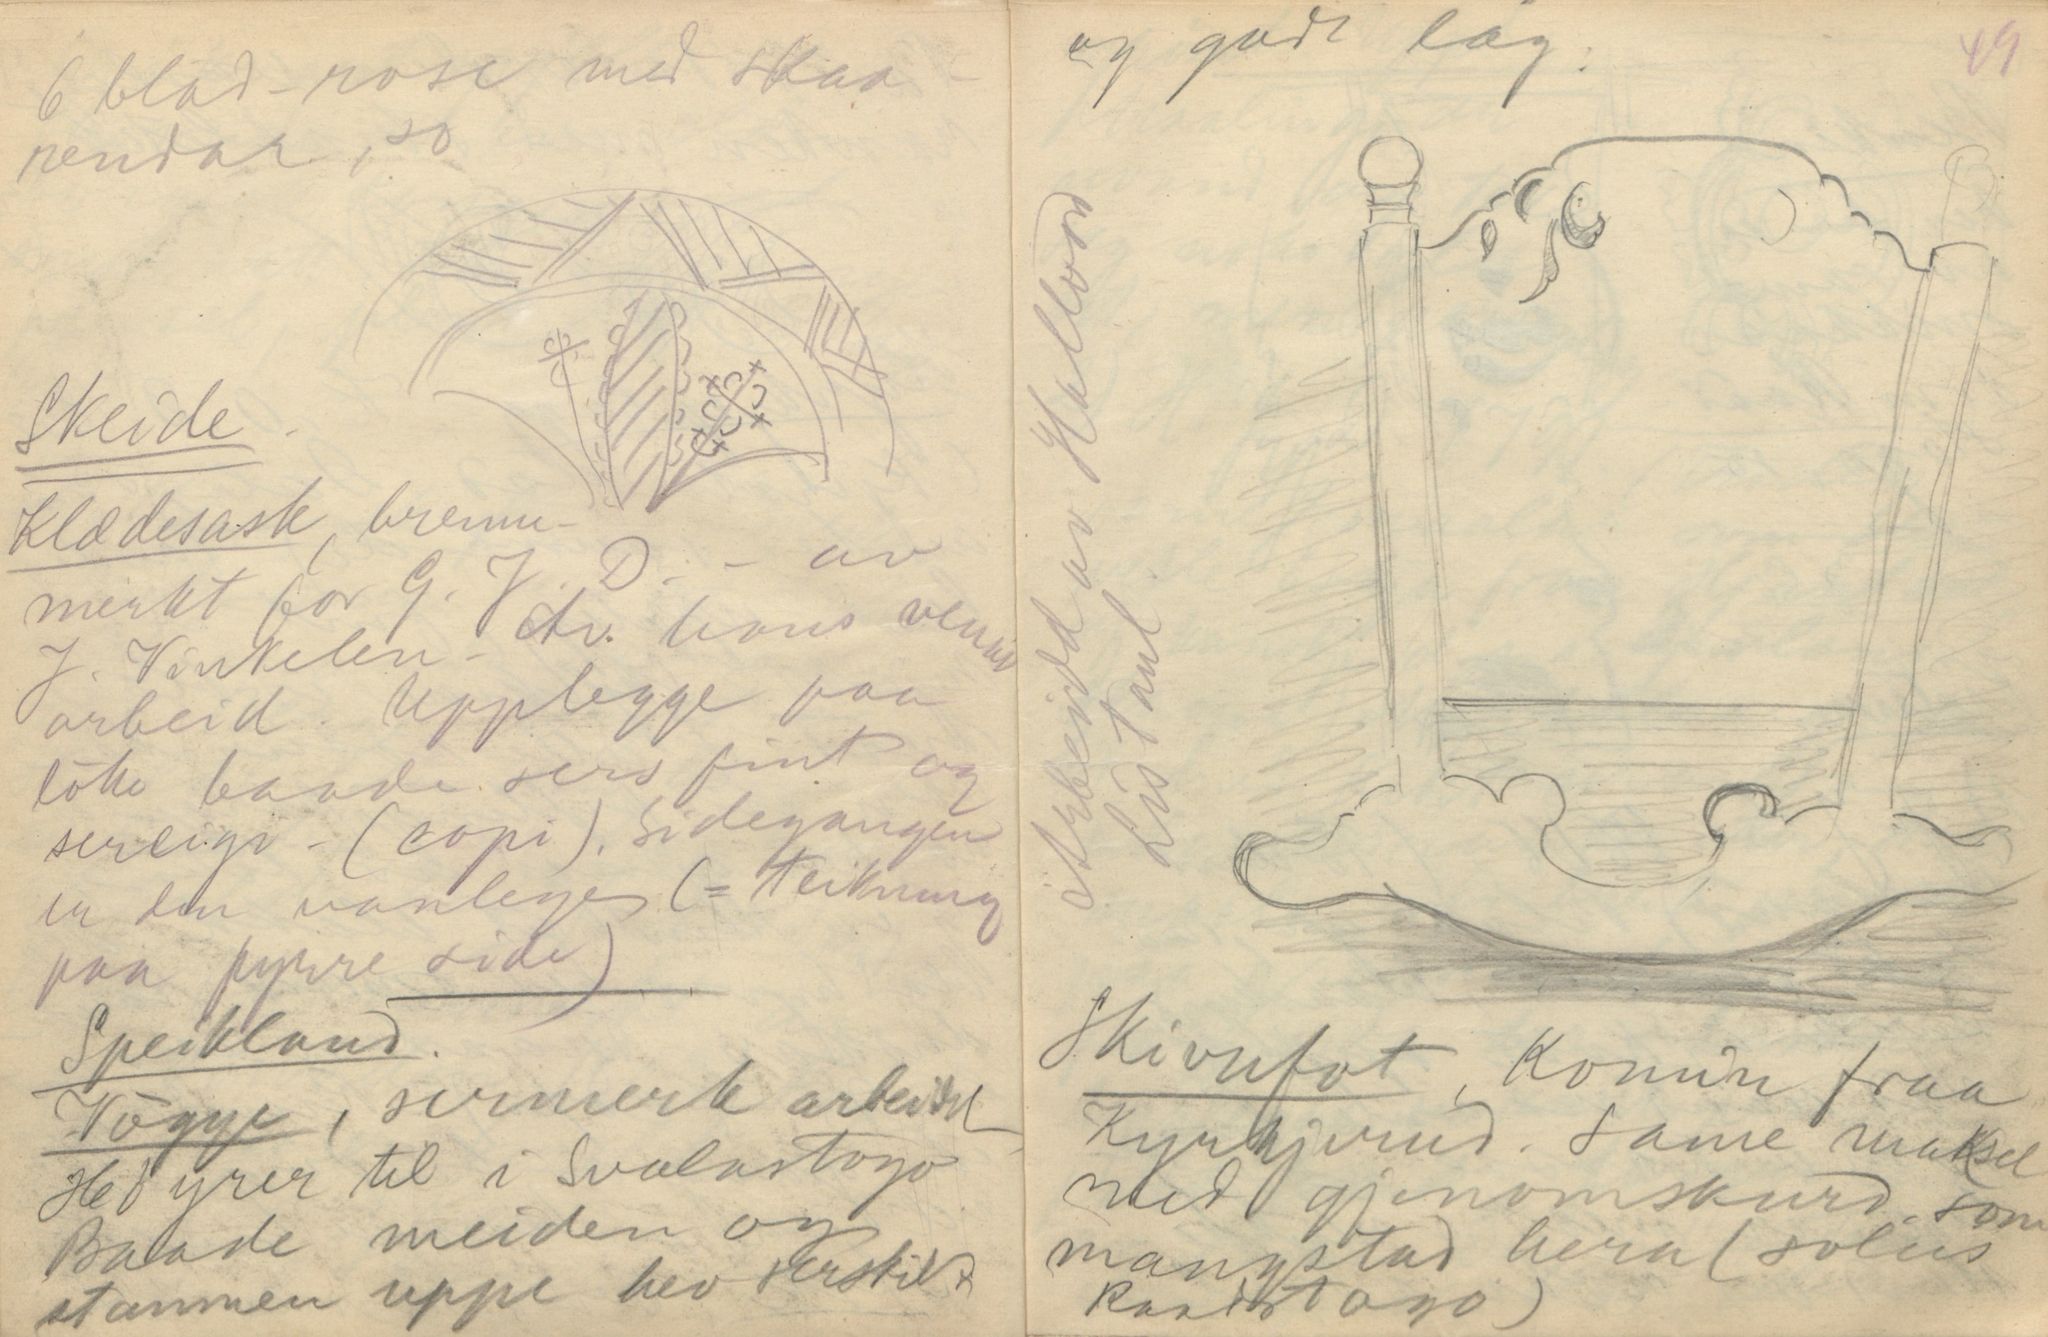 6 blad-rose med skaa-
rendar, so
Skeide.
Klædesask, brenne-
merkt for G. J. D. - av
J. Vinkelen - Av hans venu
arbeid. Upplegge paa
löke baade sers fint og
serleigt - (copi), Sidegangen
er den vanlege (= teikning
paa fyrre side)
Speikland.
Vögge, sermerk arbeidd
Höyrer til i Svalastogo
Baade meiden og
stammen uppe hev serskildt
og godt lag.
49
Arbeidd av Hallvord
Listaul
Skivefot, Komin fraa
Kyrkjerud. Same maksel
med gjenomskurd som
mangstad hera (soleis
Raastogo)